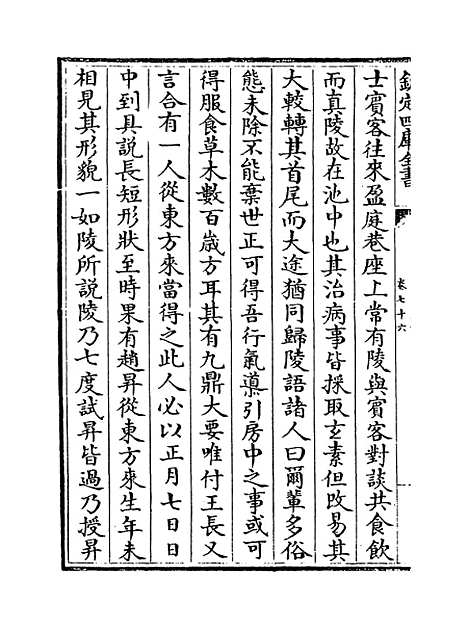 欽定四庫全書
卷七十六
士賓客往來盈庭巷座上常有陵與賓客對談共食飲
而真陵故在池中也其治病事皆採取玄素但改易其
大較轉其首尾而大途猶同歸陵語諸人曰爾輩多俗
態未除不能棄世正可得吾行氣導引房中之事或可
得服食草木數百歲方耳其有九鼎大要唯付王長又
言合有一人從東方來當得之此人必以正月七日日
中到具説長短形狀至時果有趙昇從東方來生年未
相見其形貌一如陵所説陵乃七度試昇皆過乃授昇